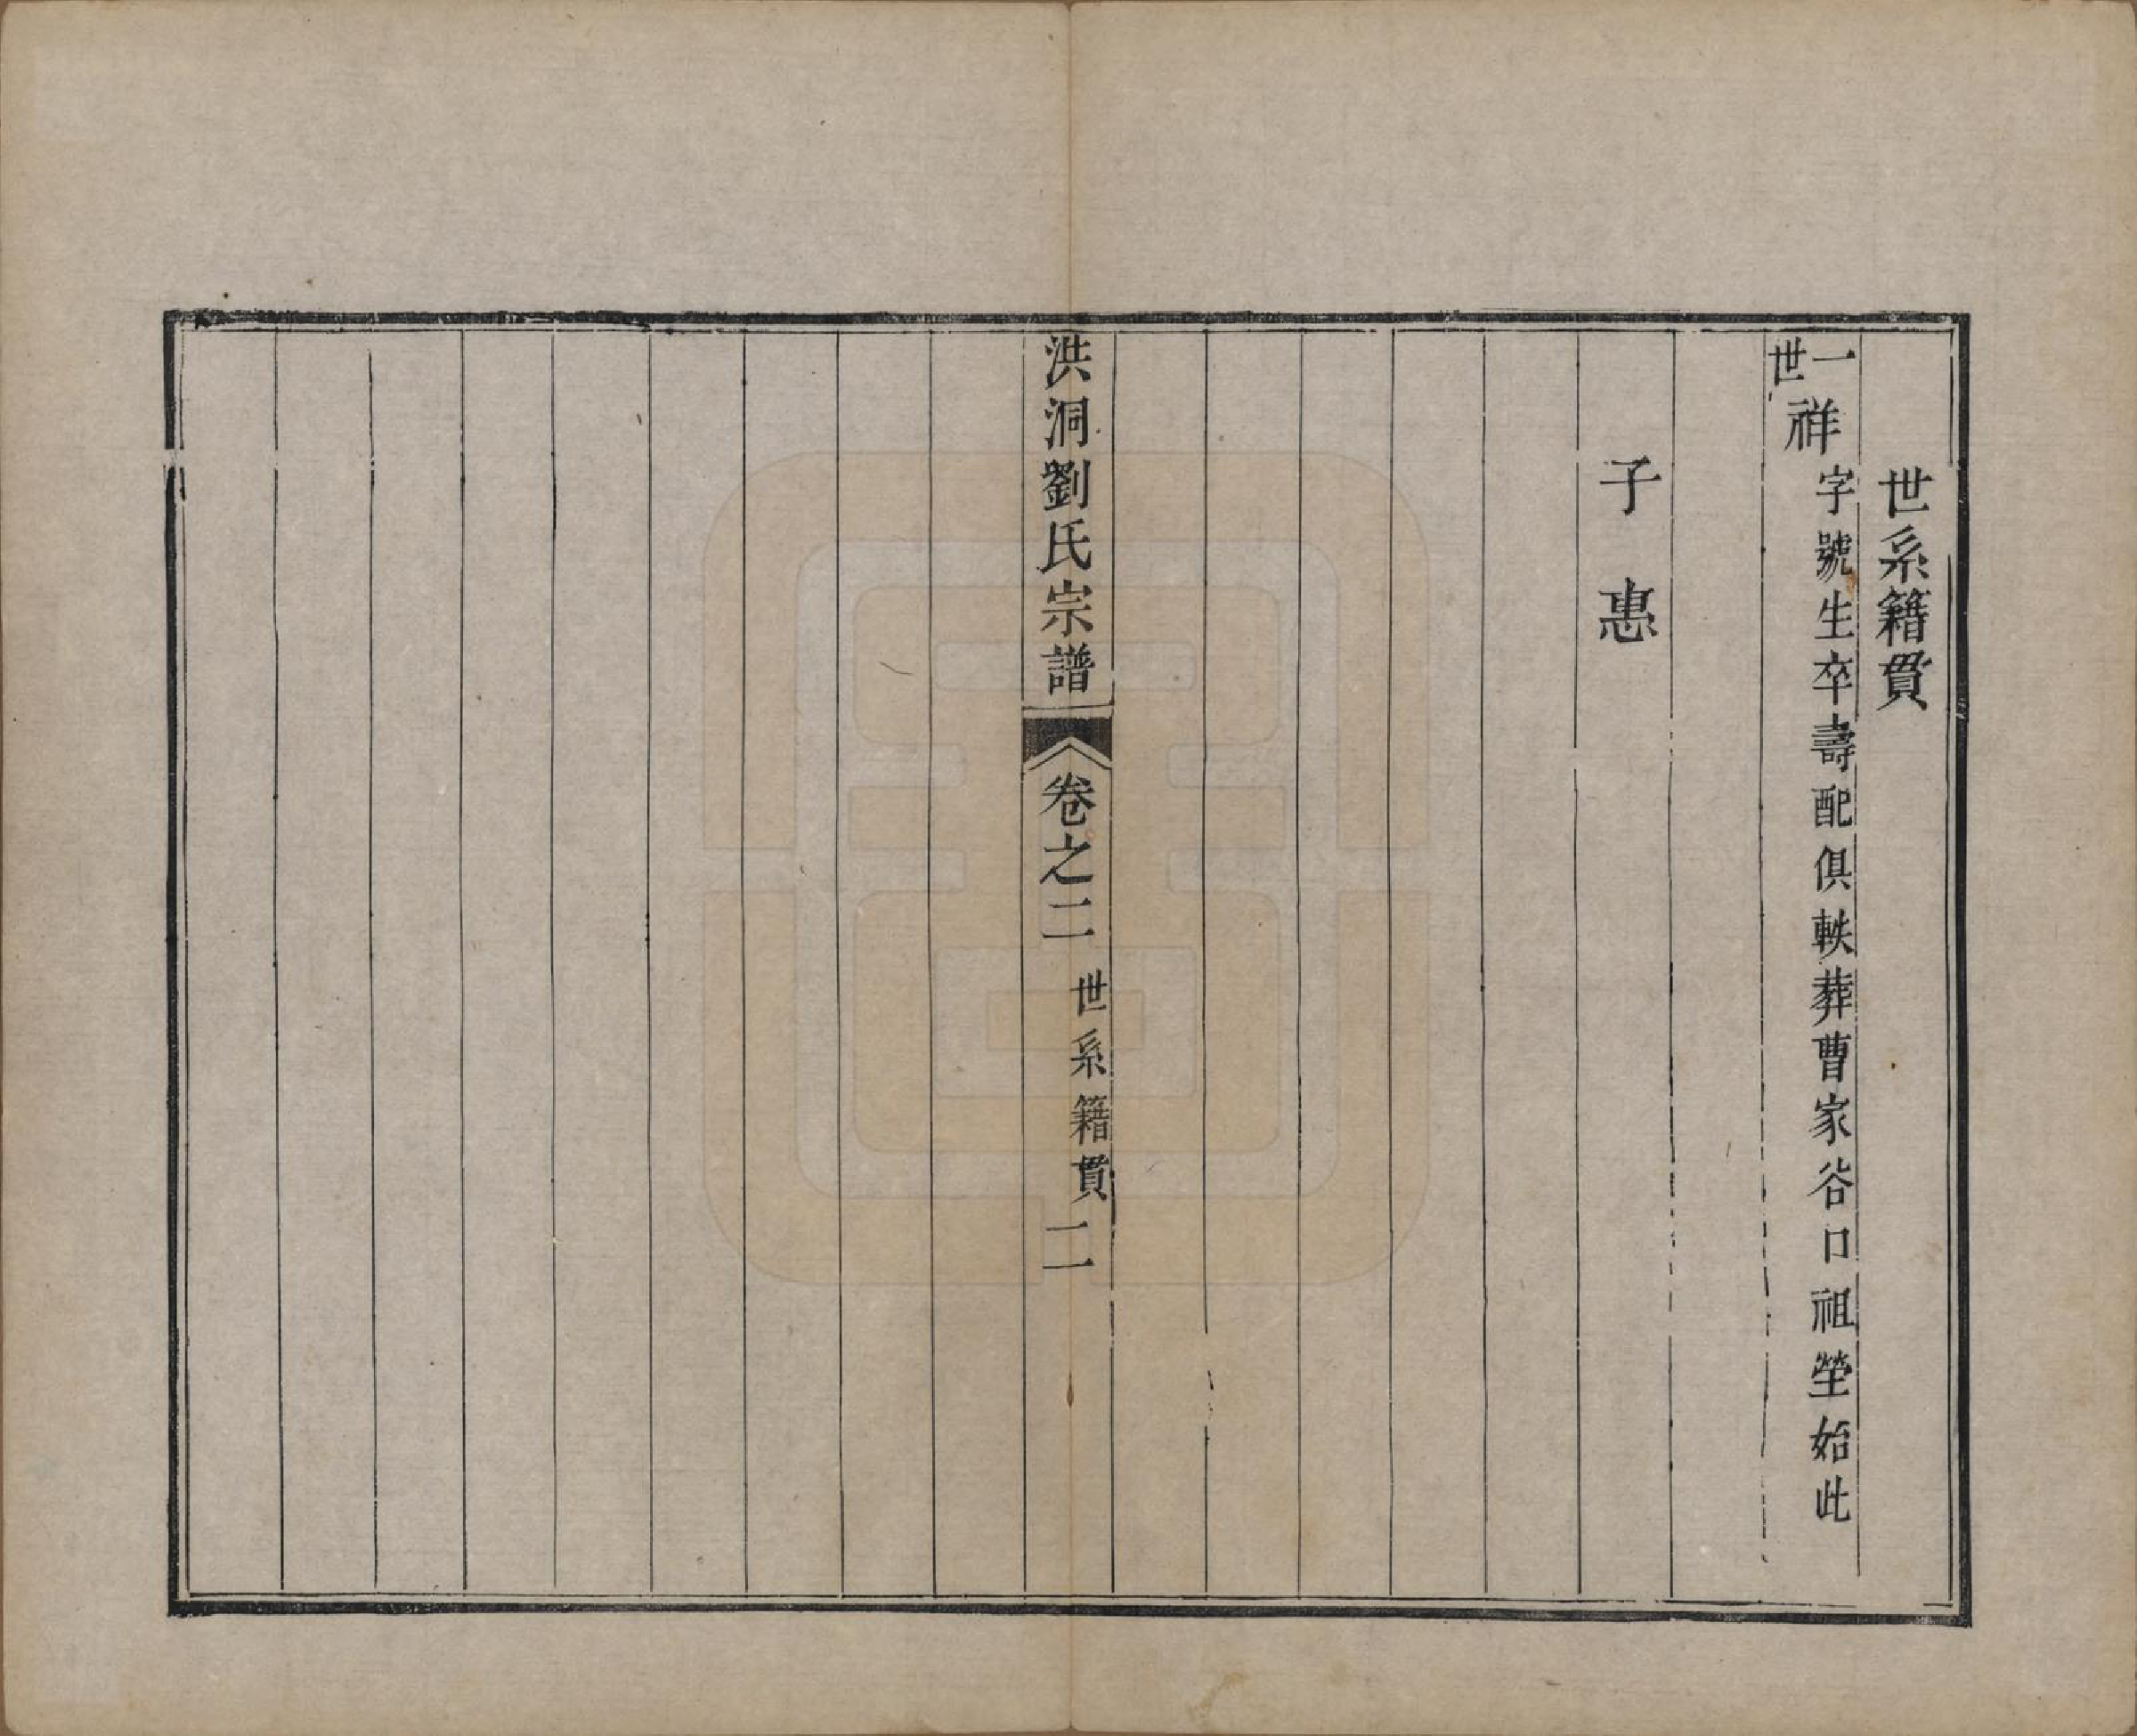 世系籍貫
一世祥字號生卒壽配俱軼葬曹家谷口祖塋始此
子惠
洪洞劉氏宗譜 卷之二 世系籍貫 二